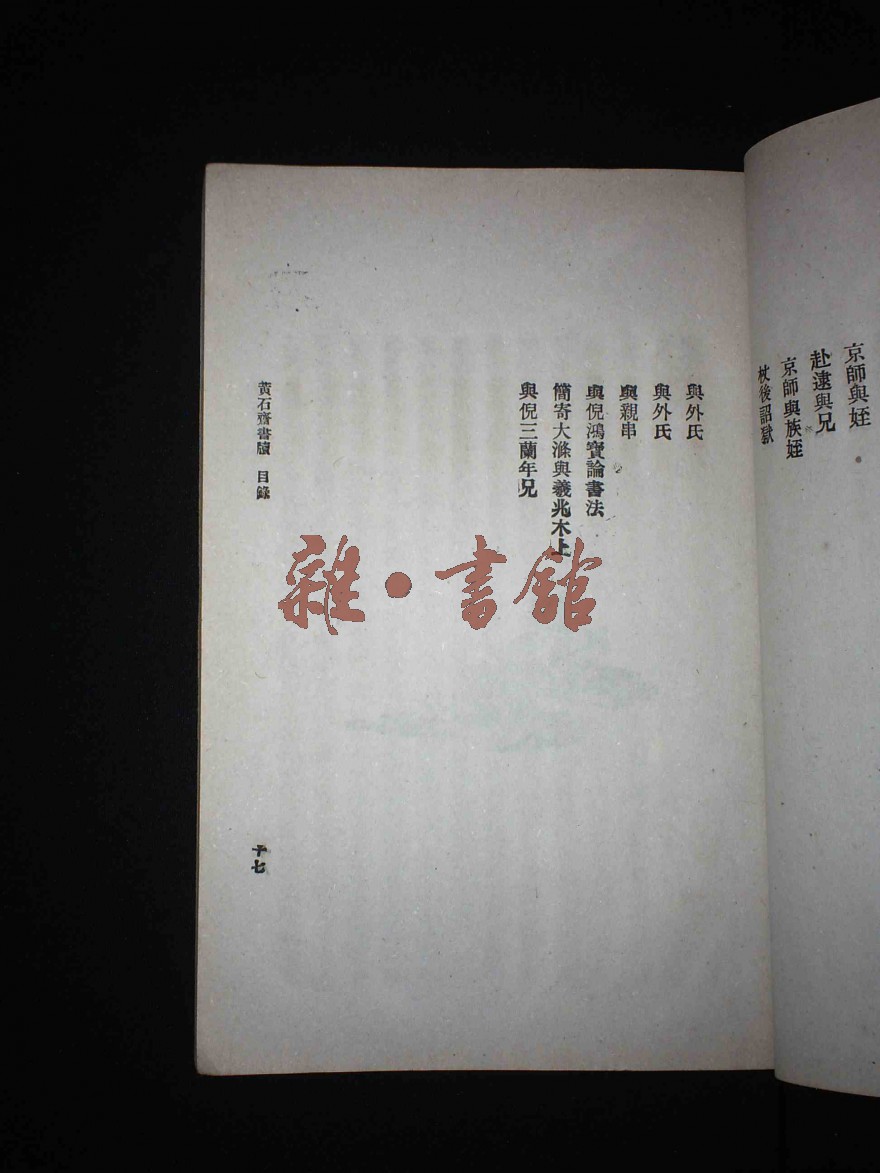 京師與姪
赴逮與兄
京師與族姪
杖後詔獄
與外氏
與外氏
與親串
與倪鴻寶論書法
簡寄大滌與羲兆木上
與倪三蘭年兄
黃石齋書牘 目錄
十七
雜·書館